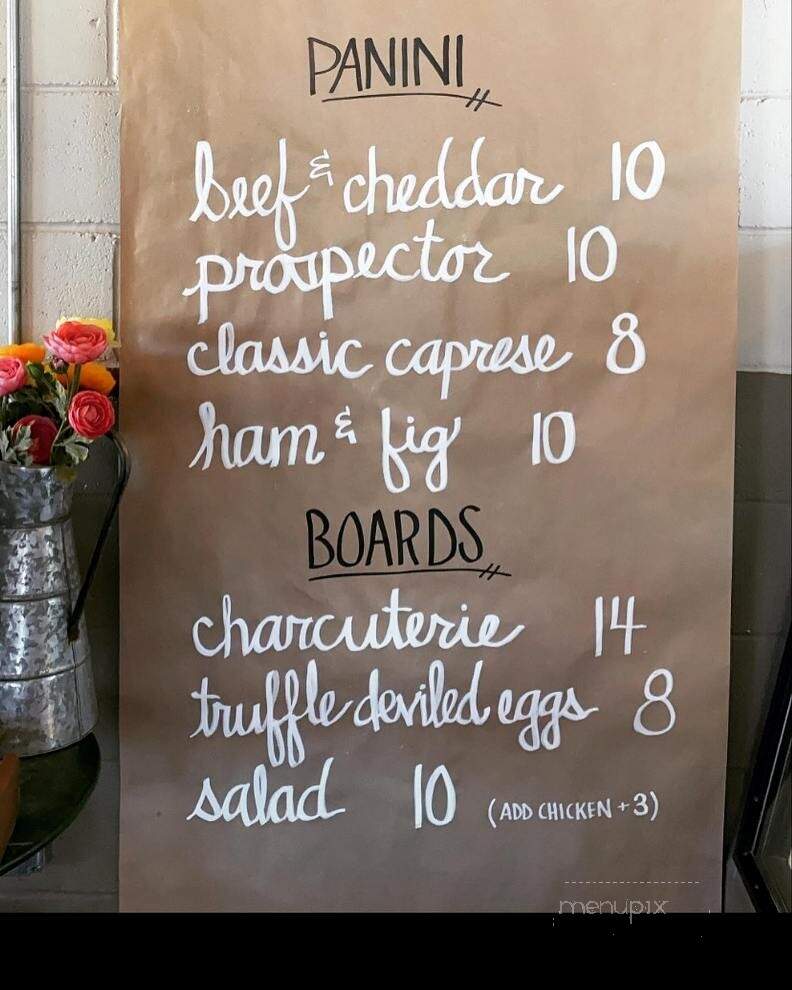 PANINI
beef & cheddar 10
prospector 10
classic caprese 8
ham & fig 10
BOARDS
charcuterie 14
truffle deviled eggs 8
salad 10 (ADD CHICKEN +3)
menupix